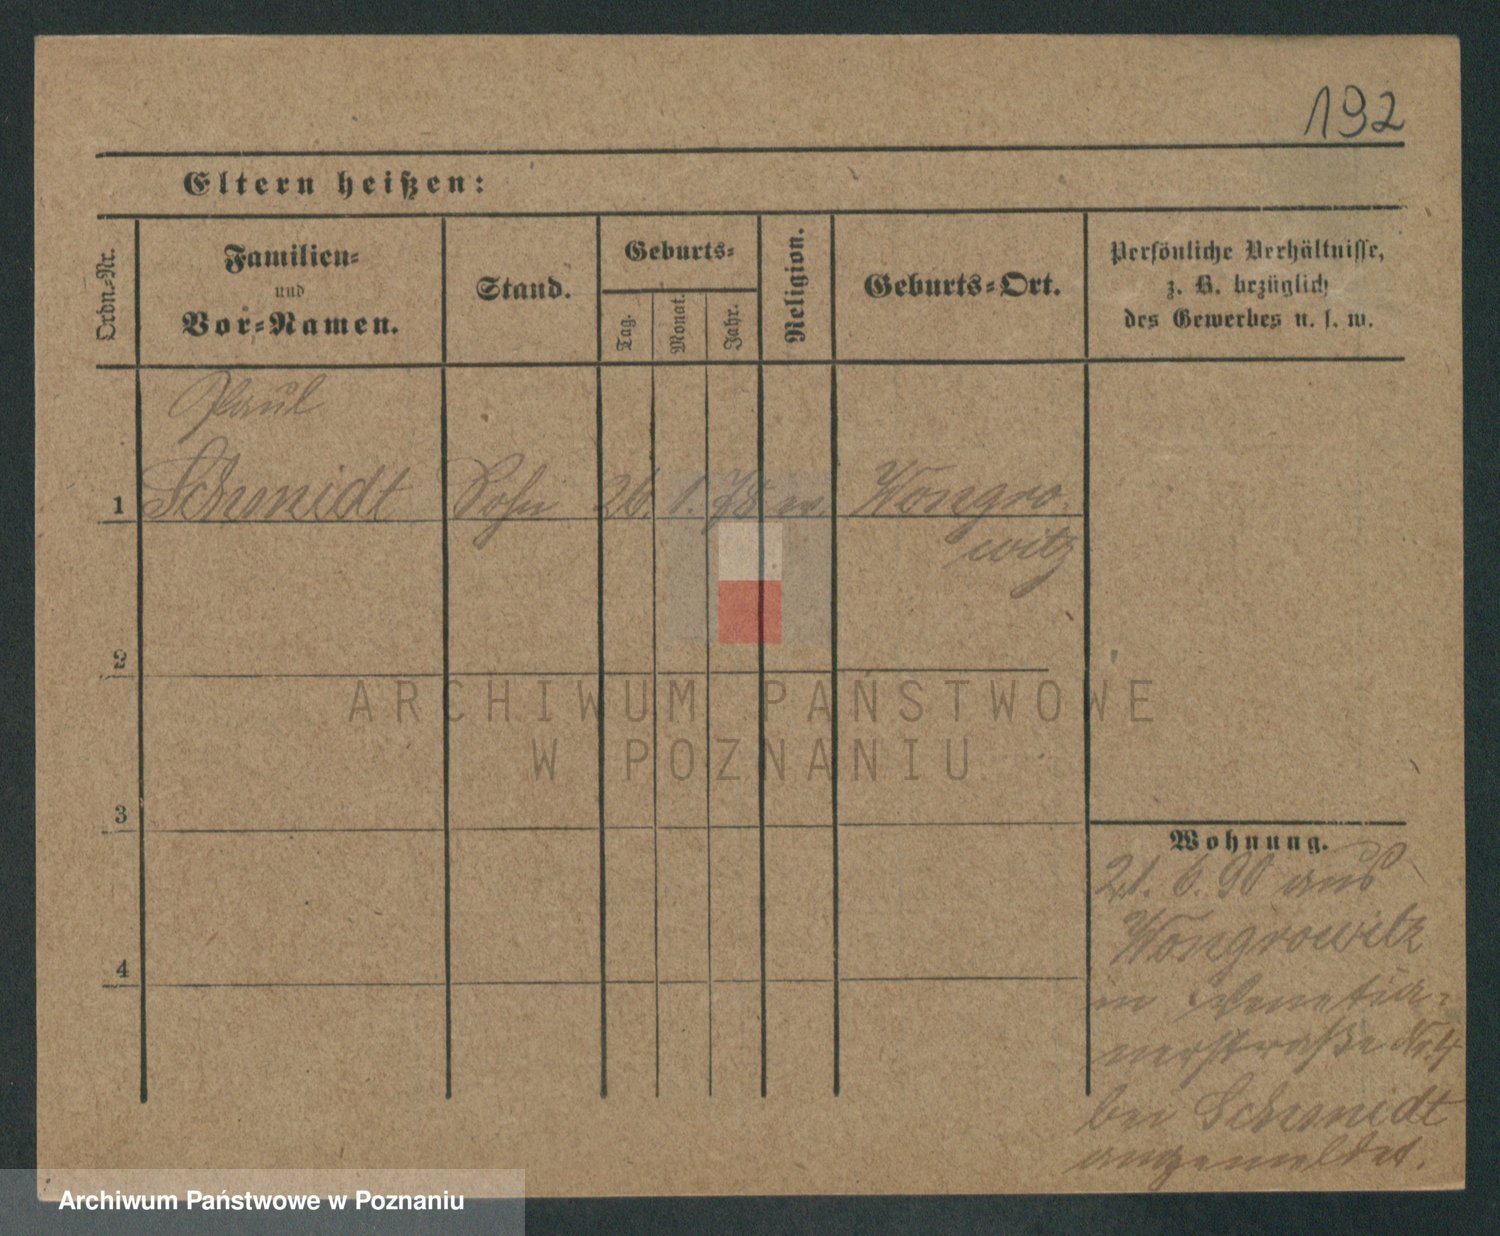 192
Eltern heißen:
Ordn.-Nr.
Familien-
und
Vor-Namen.
Stand.
Geburts-
Tag.
Monat.
Jahr.
Religion.
Geburts-Ort.
Persönliche Verhältnisse,
z. B. bezüglich
des Gewerbes u. s. w.
Paul
1 Schmidt Sohn 26. 1. 78 ev. Wongro-
witz
2
3
4
Wohnung.
21. 6. 90 aus
Wongrowitz
in Venetia-
nerstraße Nr. 4
bei Schmidt
angemeldet.
ARCHIWUM PAŃSTWOWE
W POZNANIU
Archiwum Państwowe w Poznaniu